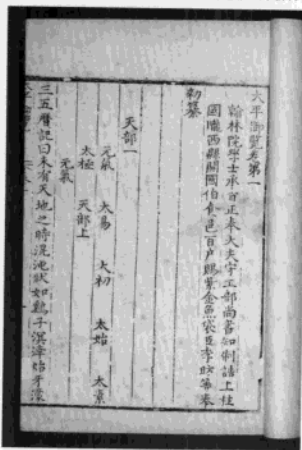 太平御覧卷第一
翰林院學士承旨正奉大夫守工部尚書知制誥上柱
國隴西縣開國伯食邑百户賜紫金魚袋臣李昉等奉
勅纂
天部一
元氣 太易 太初 太始 太素
太極 天部上
元氣
三五暦記曰未有天地之時混沌狀如鷄子溟涬始牙濛